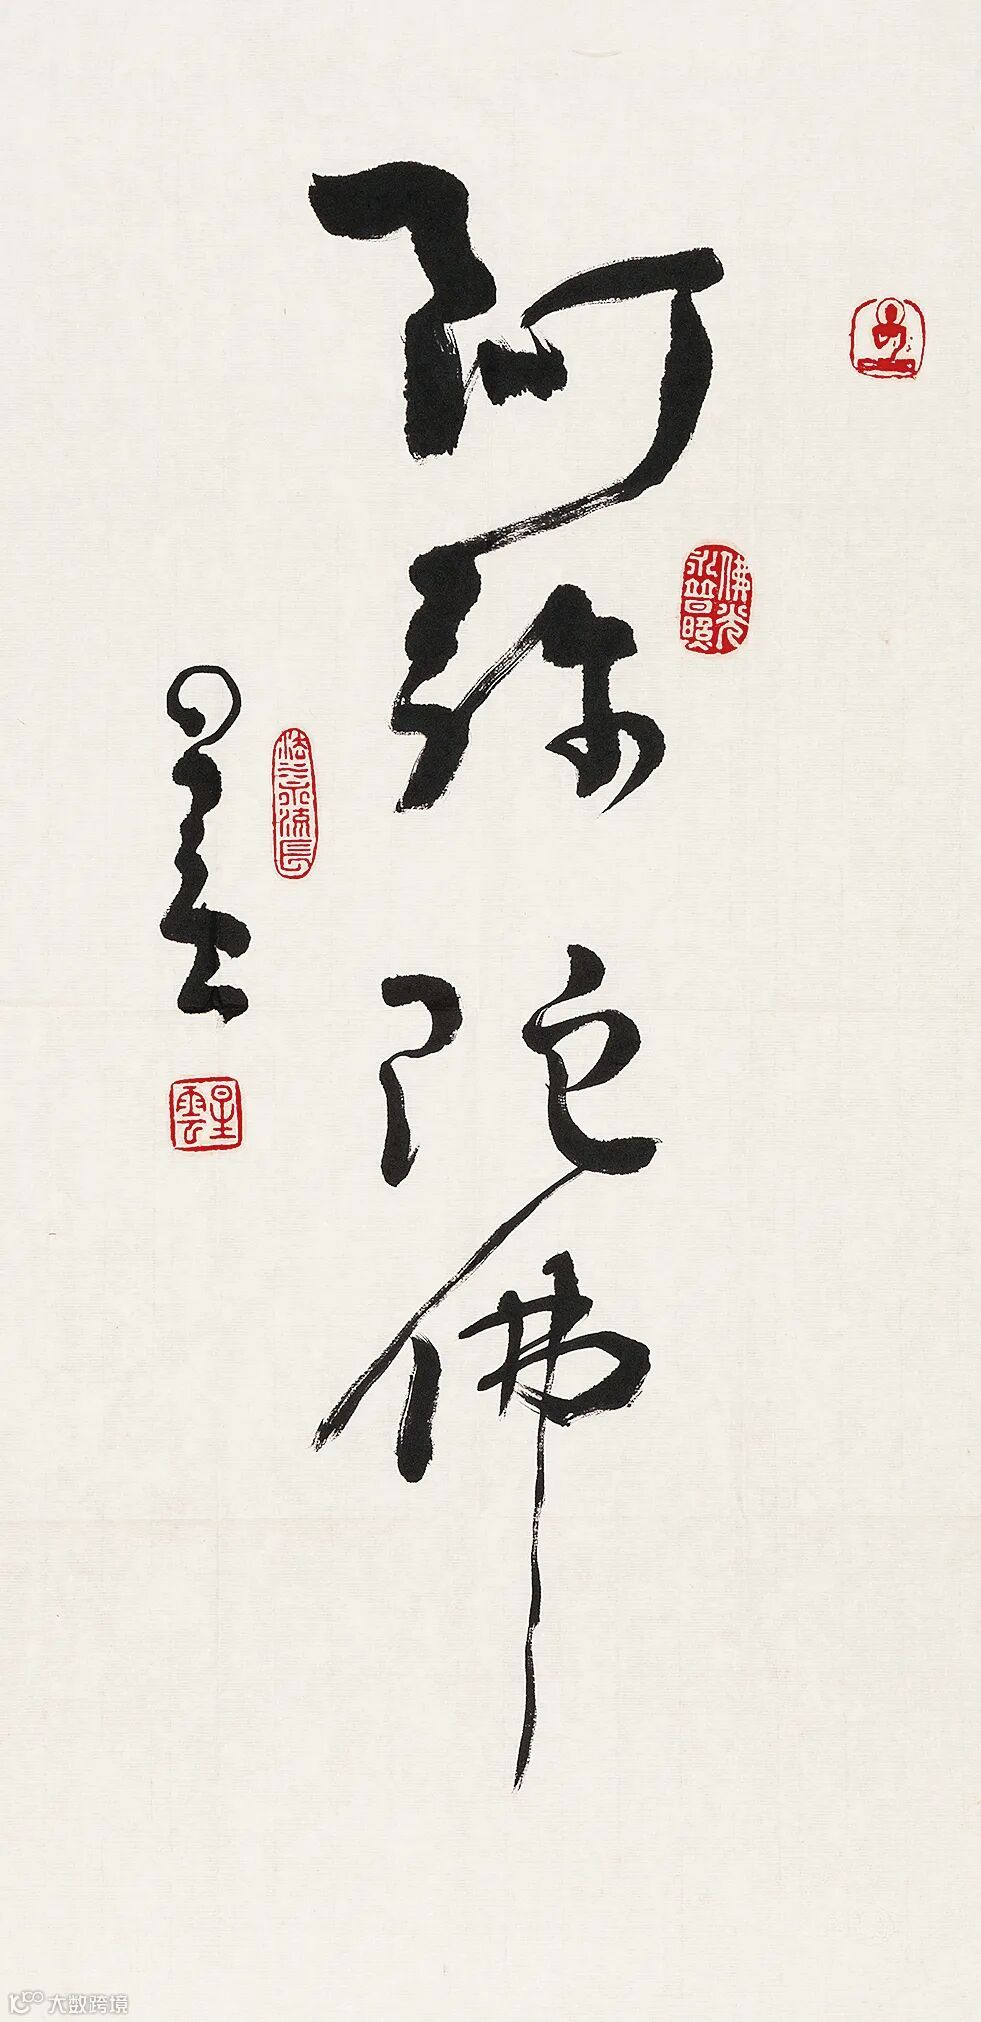 阿弥陀佛
佛光
永普照
法水流長
星雲
星雲
大数跨境